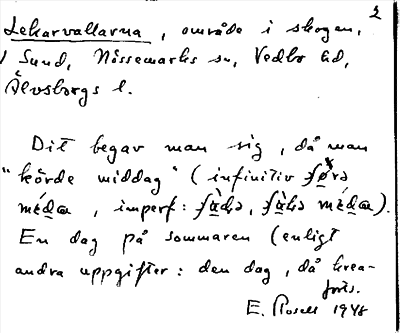 2
Lekarvallarna, område i skogen,
Sund, Nössemarks sn, Vedbo hd,
Älvsborgs l.
Dit begav man sig, då man
"körde middag" (infinitiv
, imperf:
En dag på sommaren (enligt
andra uppgifter: den dag, då krea-
E. Rosell 1948